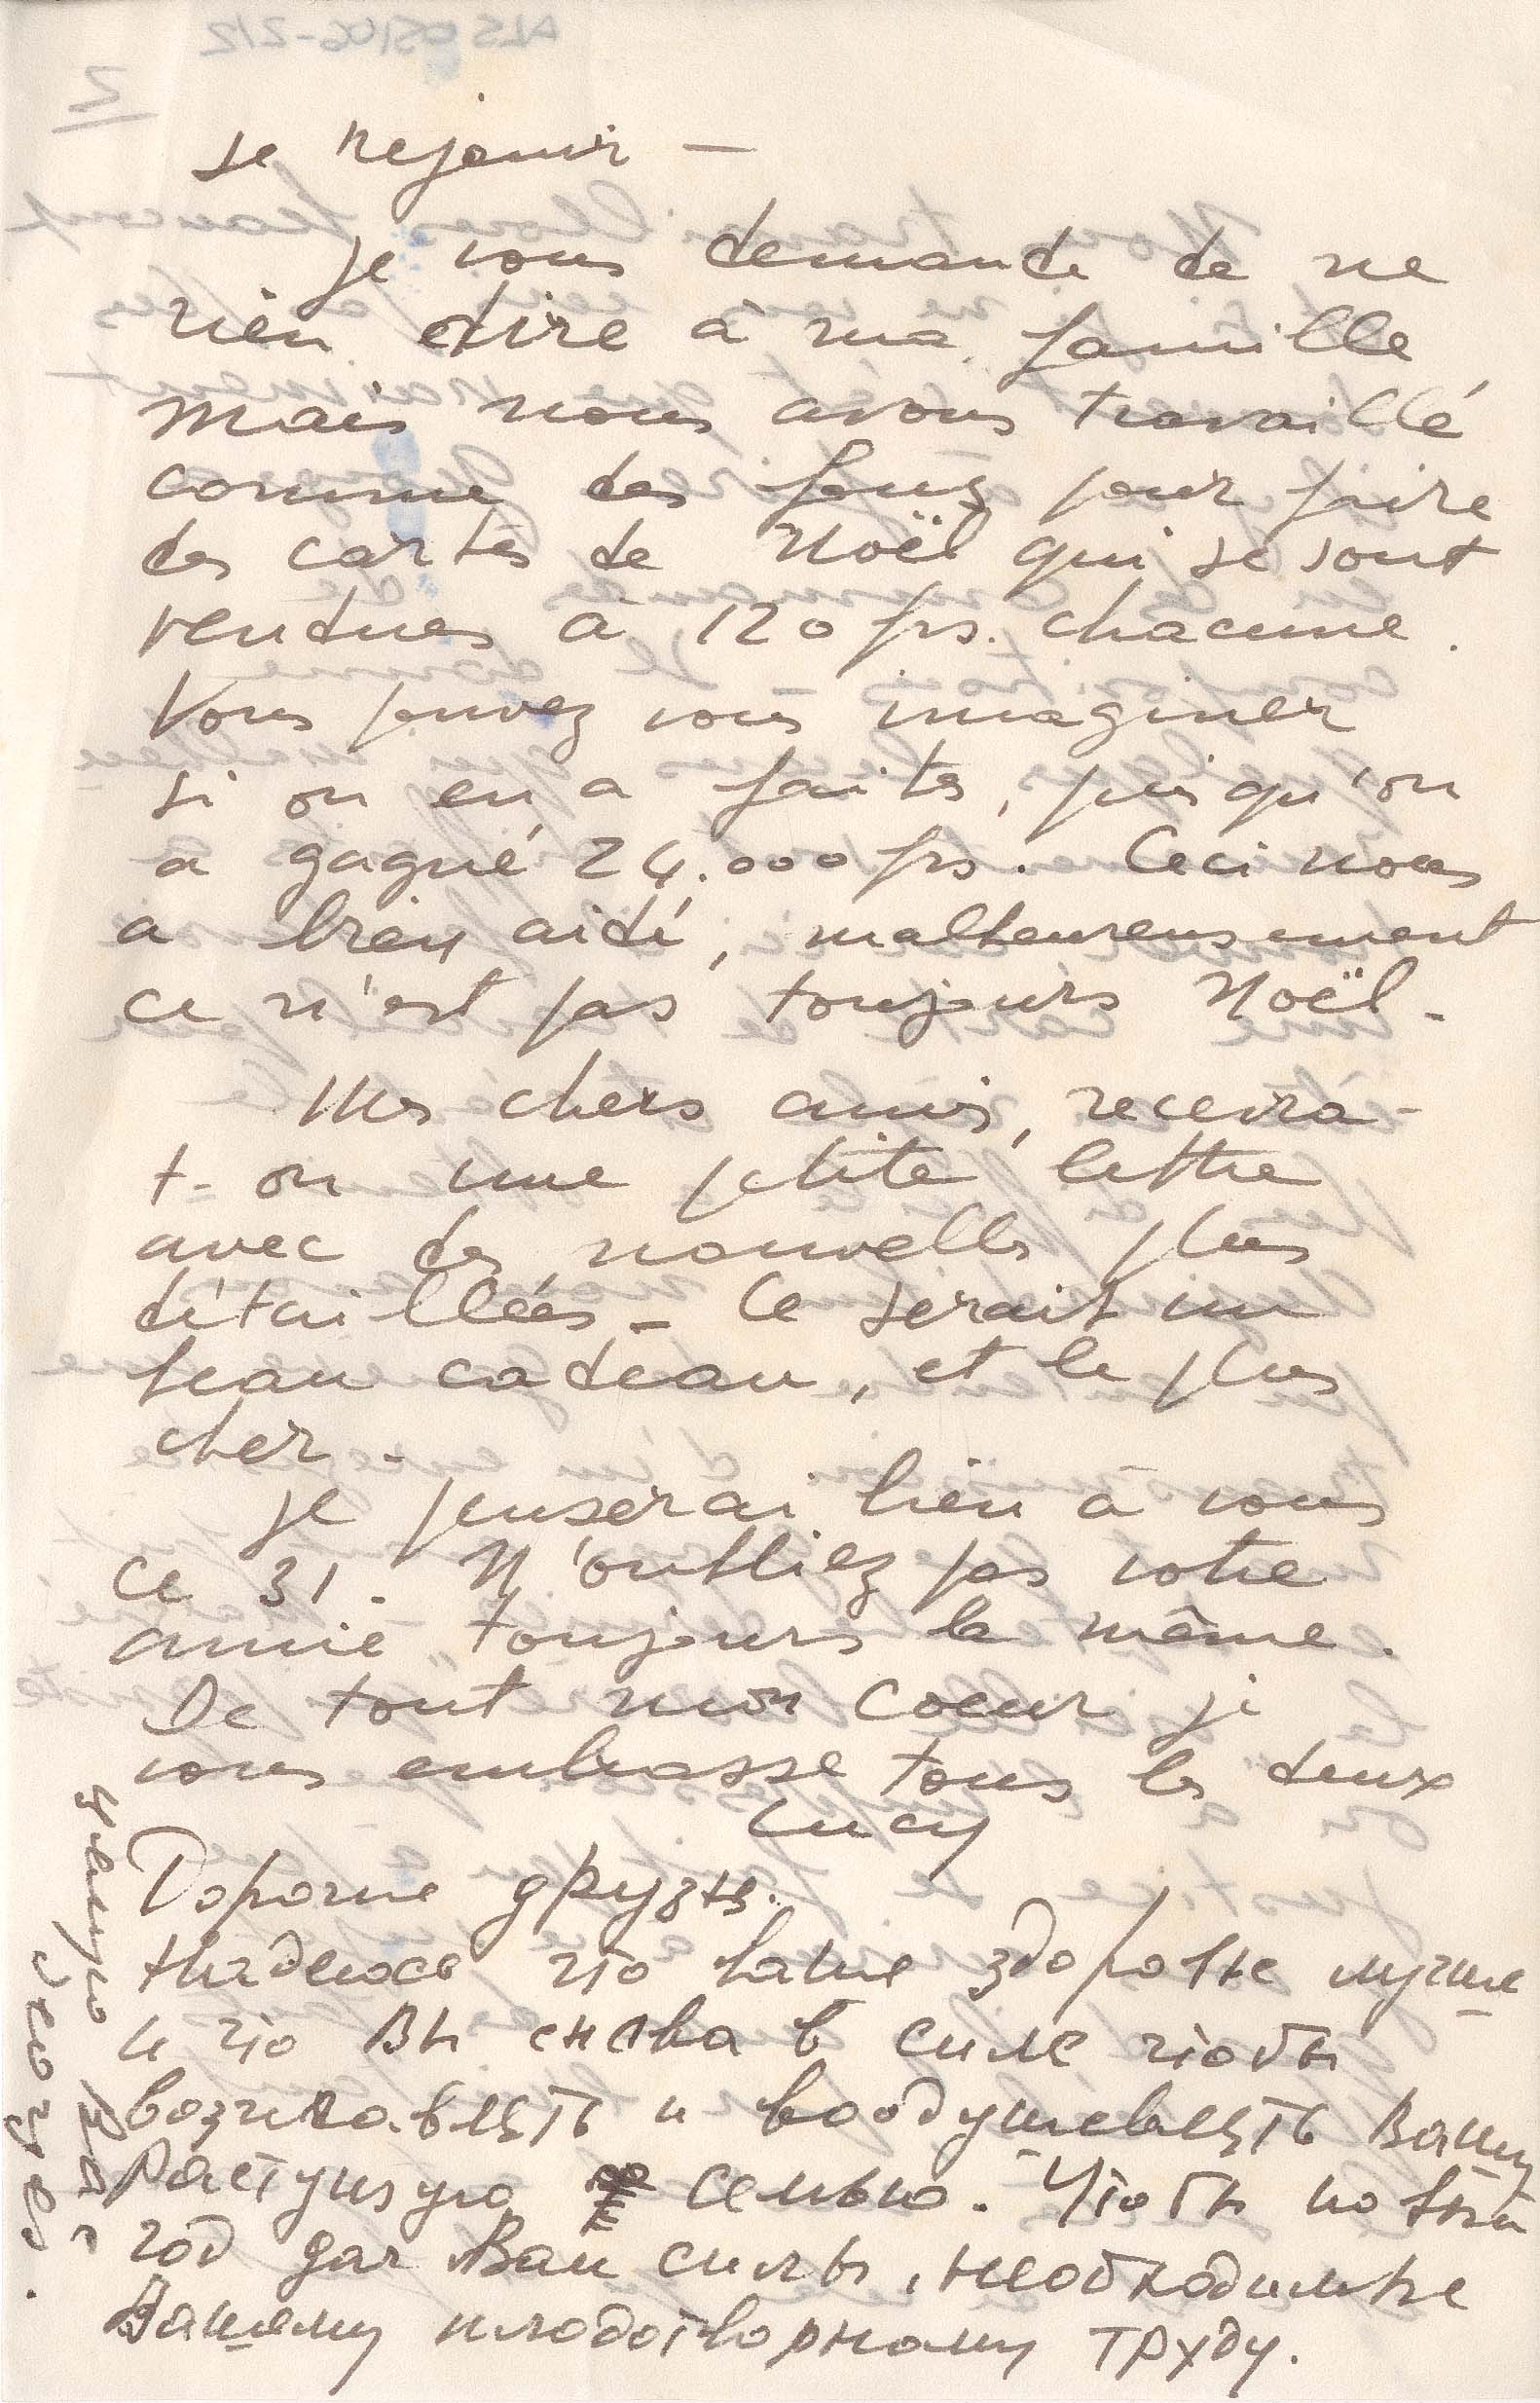 se rejouir —
je vous demande de ne
rien dire à ma famille
mais nous avons travaillé
comme des fous pour faire
des cartes de Noël qui se sont
vendues à 120 frs. chacune.
Vous pouvez vous imaginer
si on en a faites, puisqu'on
a gagné 24.000 frs. Ceci nous
a bien aidé, malheureusement
ce n'est pas toujours Noël.
Mes chers amis, recevra-
t-on une petite lettre
avec des nouvelles plus
détaillées — Ce serait un
beau cadeau, et le plus
cher -
Je penserai bien à vous
ce 31. N'oubliez pas votre
amie toujours la même.
De tout mon coeur je
vous embrasse tous les deux
Lucy
Дорогие друзья.
Надеюсь что ваше здоровье лучше
и что Вы снова в силе чтобы
возглавлять и воодушевлять Вашу
растущую семью. Чтобы новый
год дал Вам силы, необходимые
Вашему плодотворному труду.